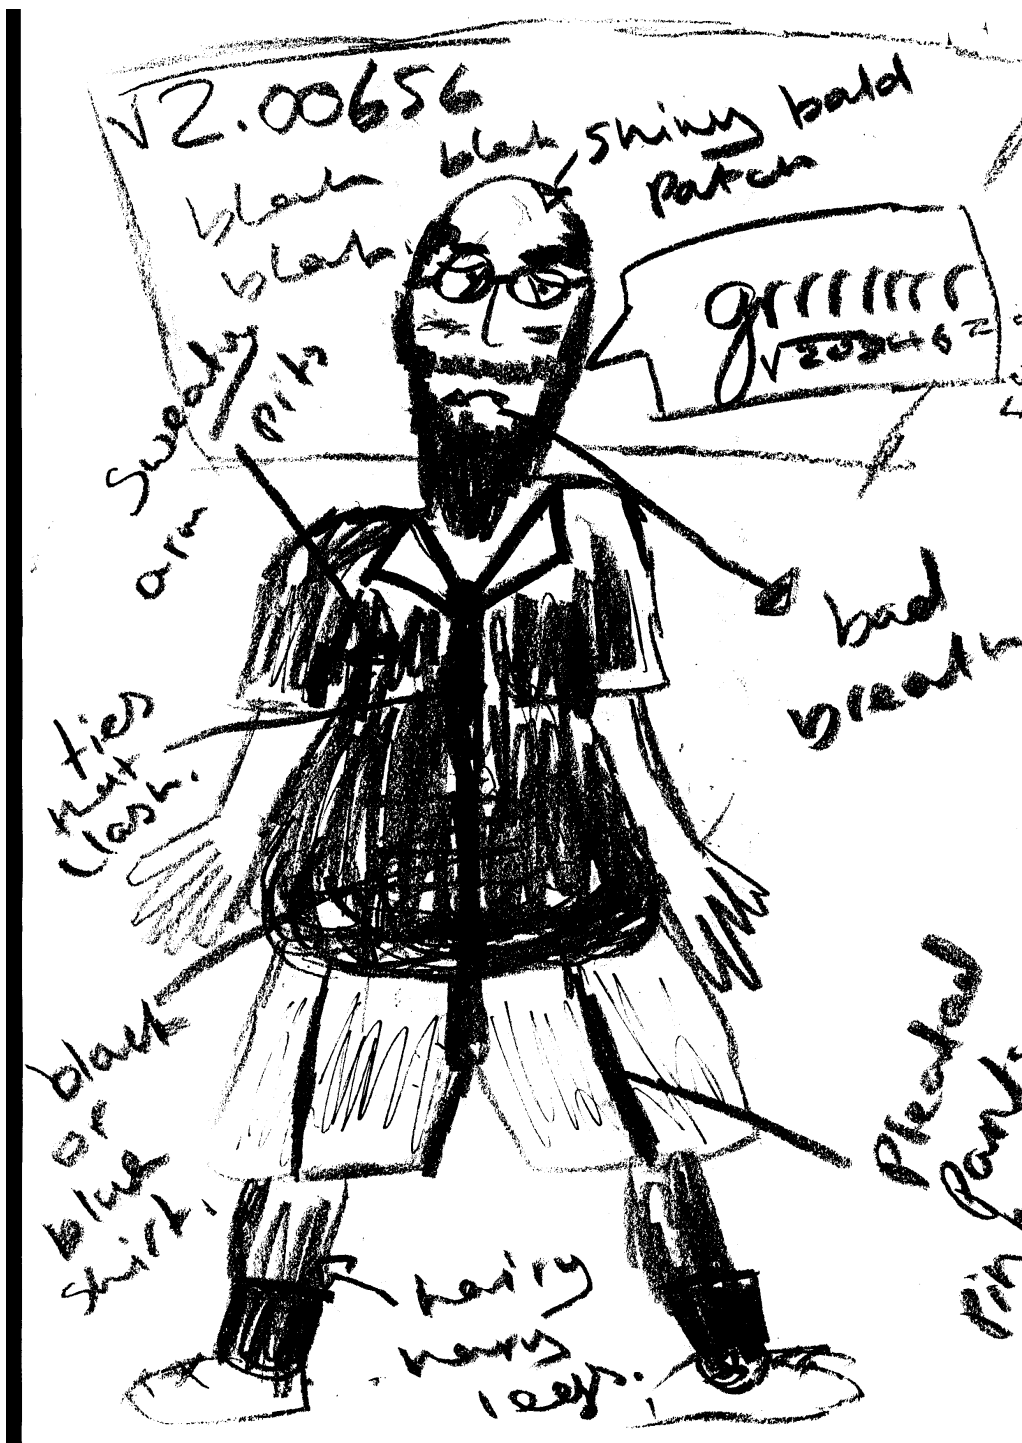 √2.00656
blah blah
blah.
shiny bald
patch
grrrrrr
sweaty
arm pits
bad
breath
ties
that
clash.
black
or
blue
shirt.
Pleated
Pants
Pin
hairy
hairy
legs.